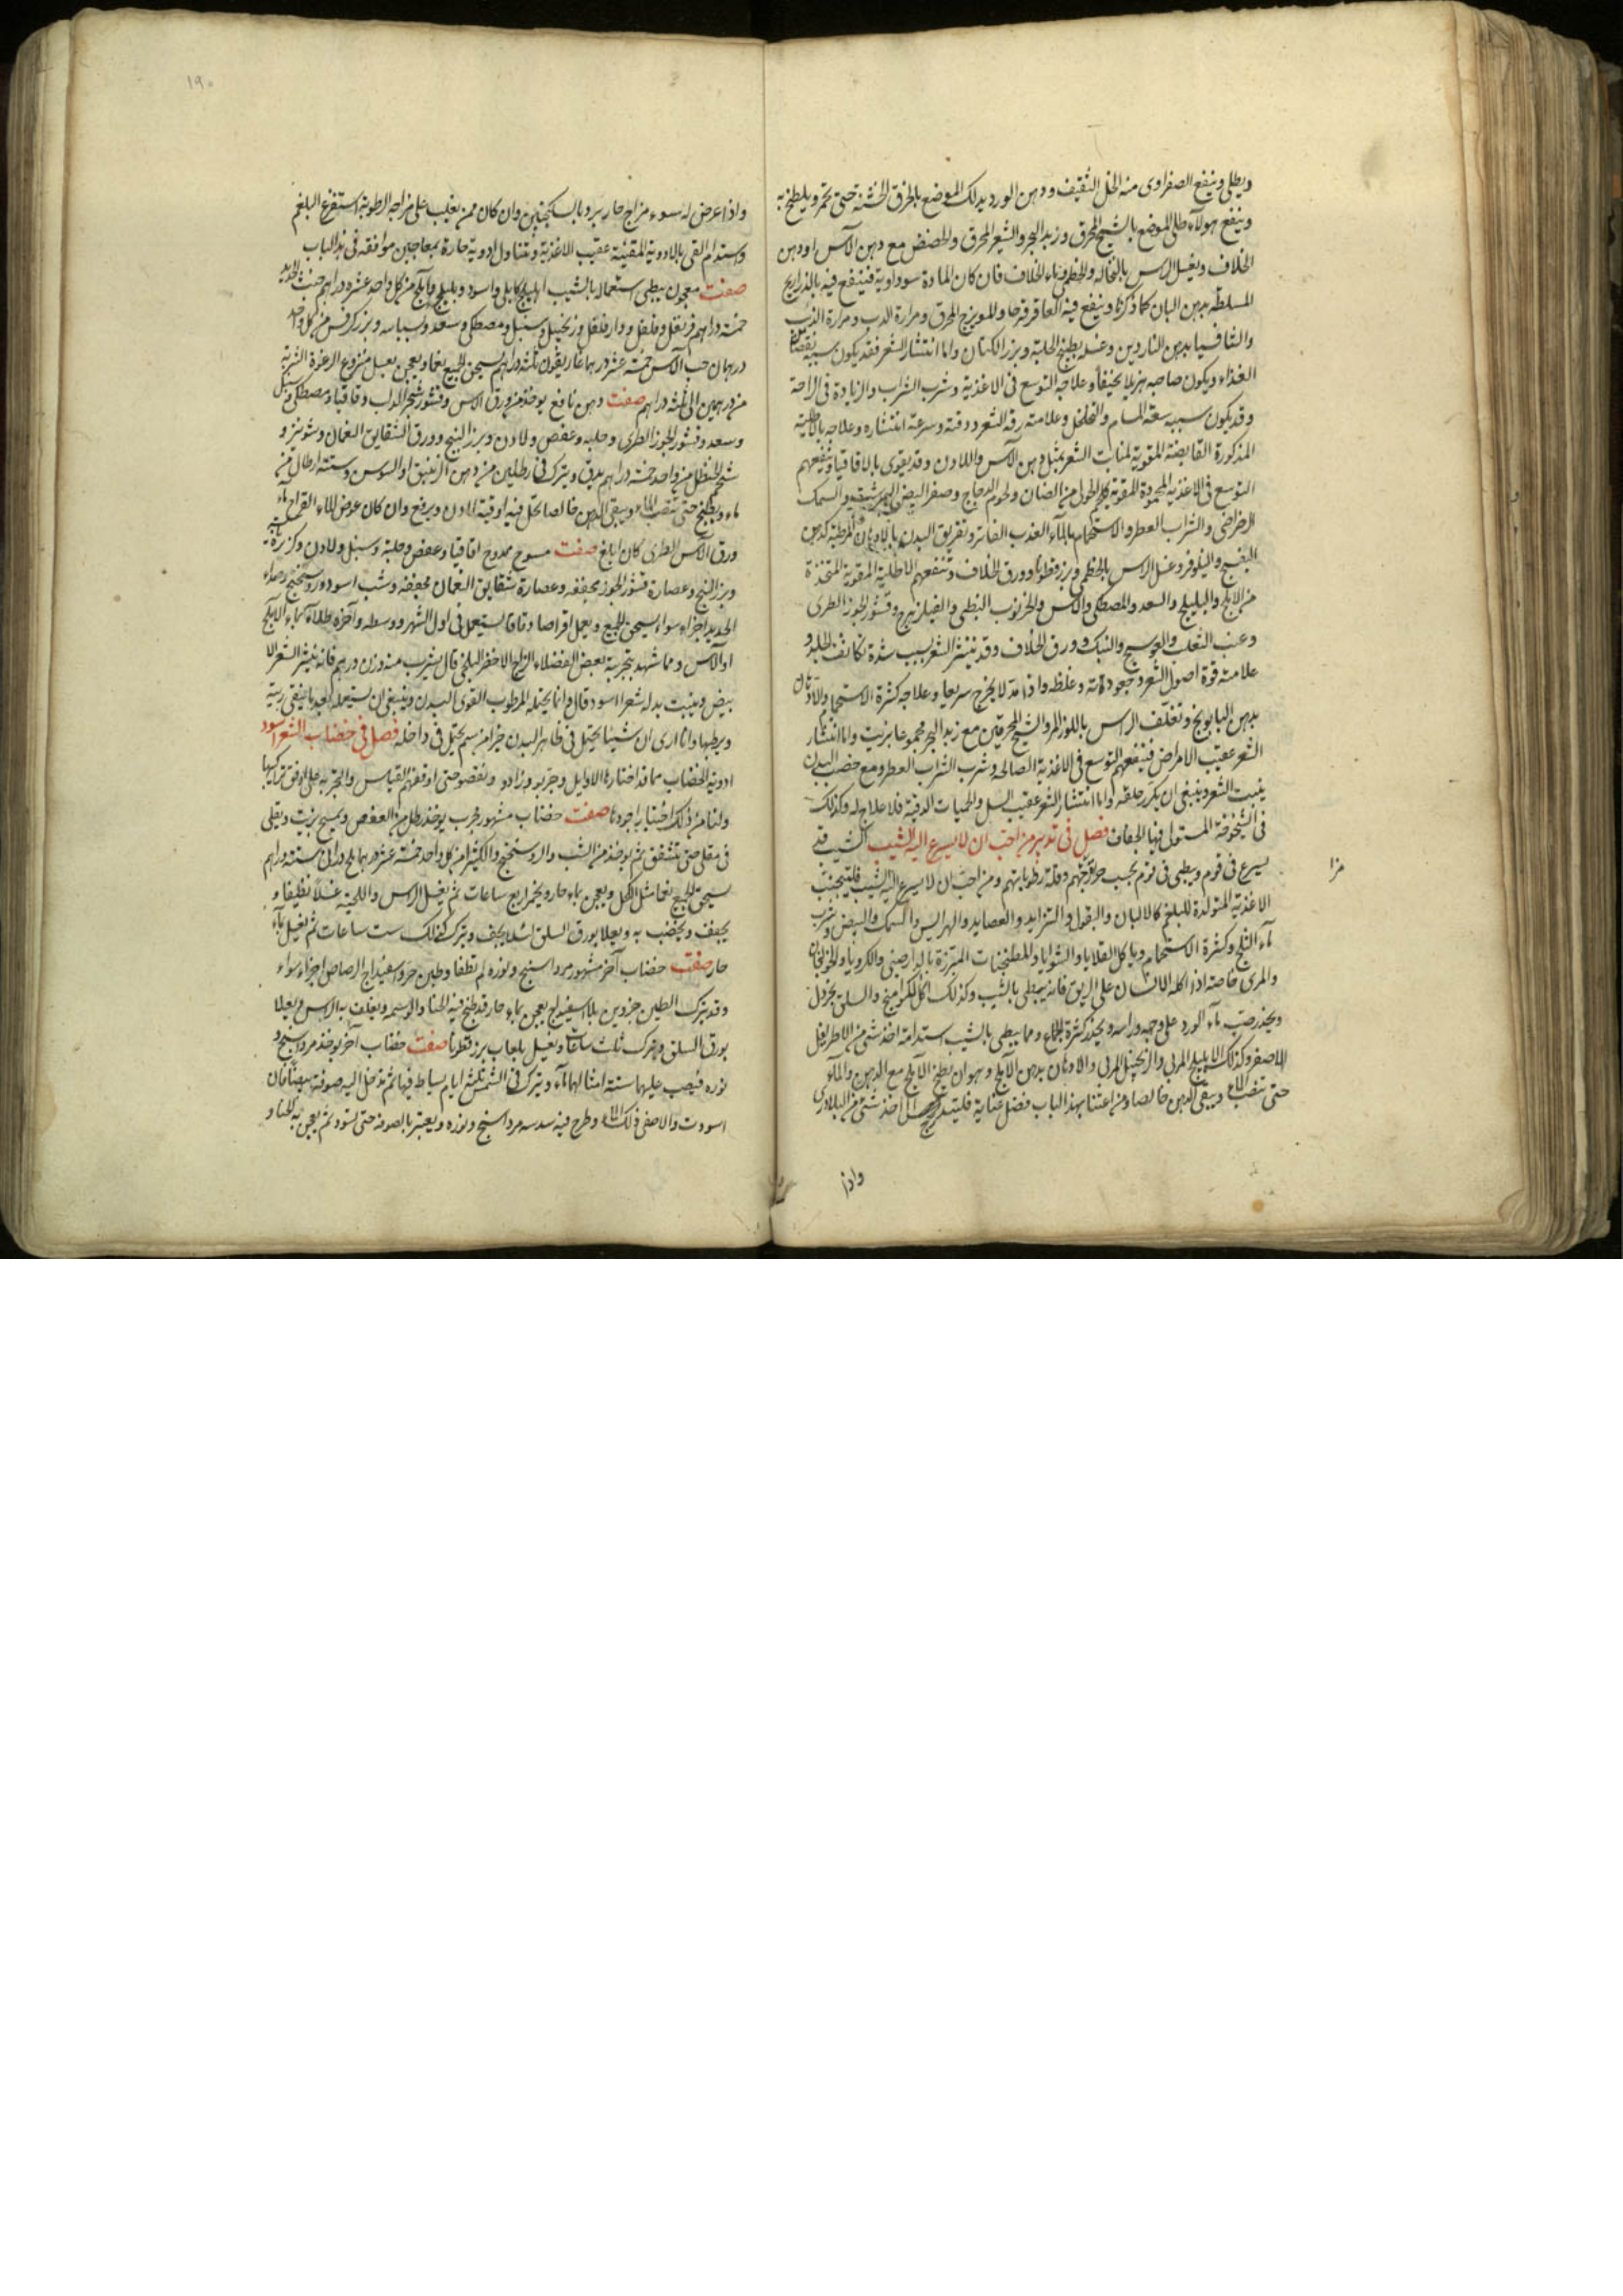 ويطلى وينفع الصفراوى منه الخل الثقيف ودهن الورد يدلك الموضع بالخرق الخشنة حتى تحمر ويلطخ به
وينفع هولآء طلى الموضع بالشيح المحرق وزبد البحر والشعر المحرق والحضض مع دهن الآس او دهن
الخلاف ويغسل الراس بالنخاله والخطمى وماء الخلاف فان كان المادة سوداوية فينتفع فيه بالذراريح
المسلطه بدهن البان كما ذكرنا وينفع فيه العاقرقرحا والمويزج المحرق ومرارة الدب ومرارة الذئب
والثافسيا بدهن الناردين وغسله بطبيخ الحلبة وبزر الكتان واما انتشار الشعر فقد يكون سببه نقصان
الغذاء ويكون صاحبه هزيلا نحيفا وعلاجه التوسع فى الاغذية وشرب الشراب والزيادة فى الراحة
وقد يكون سببه سعة المسام والتخلخل وعلامته رقة الشعر ودقته وسرعة انتشاره وعلاجه بالاطلية
المذكورة القابضة المقوية لمنابت الشعر بمثل دهن الآس واللادن وقد يقوى بالاقاقيا وينفعهم
التوسع فى الاغذية المحمودة المقوية كلحم الحولى من الضان ولحوم الدجاج وصفر البيض النيمرشت والسمك
الرضراضى والشراب العطر والاستحمام بالمآء العذب الفاتر وتغريق البدن بالادهان المرطبة كدهن
البنفسج والنيلوفر وغسل الراس بالخطمى وبزر قطونا وورق الخلاف وتنفعهم الاطلية المقوية المتخذة
من الاملج والبليلج والسعد والمصطكى والآس والخرنوب النبطى والفيلزهرج وقشور الجوز الطرى
وعنب الثعلب والعوسج والنبك وورق الخلاف وقد ينتثر الشعر بسبب شدة تكاثف الجلد و
علامته قوة اصول الشعر وجعودته وغلظه واذا مد لا يخرج سريعا وعلاجه كثرة الاستحمام والادهان
بدهن البابونج وتغلف الراس باللوز المر والشيح المحرقين مع زبد البحر مجموعا بزيت واما انتشار
الشعر عقيب الامراض فينفعهم التوسع فى الاغذية الصالحه وشرب الشراب العطر ومع خصب البدن
ينبت الشعر وينبغى ان يكرر حلقه واما انتشار الشعر عقيب السل والحميات الدقية فلا علاج له وكذلك
فى الشيخوخة المستولى فيها الجفاف فصل فى تدبير من احب ان لا يسرع اليه الشيب الشيب قد
يسرع فى قوم ويبطى فى قوم بحسب حرارتهم وقلة رطوباتهم ومن احب ان لا يسرع اليه الشيب فليتجنب
الاغذية المتولدة للبلغم كالالبان والبقول والثرايد والعصايد والهرايس والسمك والبيض وشرب
مآء الثلج وكثرة الاستحمام وياكل القلايا والشوايا والمطنجنات المبزرة بالدارصينى والكرويا والخولنجان
والمرى خاصة اذا اكله الانسان على الريق فانه يبطى بالشيب وكذلك اكل الكوامخ والسلق بخردل
ويحذر صب مآء الورد على وجهه وراسه ويحذر كثرة الجماع ومما يبطى بالشيب استدامة اخذ شئ من الاطريفل
الاصغر وكذلك الاهليلج المربى والزنجبيل المربى والادهان بدهن الآملج وهو ان يطبخ الآملج مع الدهن والمآء
حتى تنضب الماء ويبقى الدهن خالصا ومن اعتنا بهذا الباب فضل عناية فليتدرج الى اخذ شئ من البلادرى
مزا
واذا
١٩٠
واذا عرض له سوء مزاج حار يبرد بالسكنجبين وان كان ممن يغلب على مزاجه الرطوبة استفرغ البلغم
واستدام القى بالادوية المقيئة عقيب الاغذية وتناول ادوية حارة بمعاجين موافقه فى هذا الباب
صفت معجون يبطى استعماله بالشيب اهليلج كابلى واسود وبليلج وآملج من كل واحد عشره دراهم خبث الحديد
خمسة دراهم قرنفل وفلفل ودارفلفل وزنجبيل وسنبل ومصطكى وسعد وبسباسه وبزر كرفس من كل واحد
درهمان حب الآس خمسة عشر درهما غاريقون ثلثه دراهم يسحق الجميع نعما ويعجن بعسل منزوع الرغوة الشربة
من درهمين الى ثلثه دراهم صفت دهن نافع يوخذ من ورق الآس وقشور شجر الداب وقاقيا ومصطكى وسنبل
وسعد وقشور الجوز الطرى وحلبه وعفص ولادن وبزر البنج وورق الشقايق النعمان وشونيز و
شحم الحنظل من كل واحد خمسة دراهم يدق ويترك فى رطلين من دهن الزنبق او السوس وستة ارطال من
ماء ويطبخ حتى تنضب الماء ويبقى الدهن خالصا يحل فيه اوقية لادن ويرفع وان كان عوض الماء القراح ماء
ورق الآس الطرى كان ابلغ صفت مسوح ممدوح اقاقيا وعفص وحلبة وسنبل ولادن وكزبرة يابسه
وبزر البنج وعصارة قشور الجوز مجففه وعصارة شقايق النعمان مجففه وشب اسود وروسختج وصداء
الحديد اجزاء سواء يسحق الجميع ويعمل اقراصا رقاقا يستعمل فى اول الشهر ووسطه وآخره طلاء بماء الآملج
او الآس ومما شهد بتجربة بعض الفضلاء الزاج الاخضر البلخى قال يشرب منه وزن درهم فانه ينثر الشعر الا
بيض وينبت بدله شعرا اسود قال وانما يحتمله المرطوب القوى البدن وينبغى ان يستعمله بعد ما ينقى ريته
ويرطبها وانا ارى ان شيئا يحتمل فى ظاهر البدن خير من سم يحتمل فى داخله فصل فى خضاب الشعر اسود
ادوية الخضاب مما قد اختاره الاوايل وجربو وزادو ونقصو حتى اوقفهم القياس والتجربه على اوفق تراكيبها
ولنا من ذلك اختيار اجودها صفت خضاب مشهور مجرب يوخذ رطل من العفص ويمسح بزيت ويقلى
فى مقلى حتى تتشقق ثم يوخذ من الشب والروسختج والكثيرا من كل واحد خمسة عشر درهما ملح دارانى ستة دراهم
يسحق الجميع نعما مثل الكحل ويعجن بماء حار ويخمر اربع ساعات ثم يغسل الراس واللحية غسلا نظيفا و
يجفف ويخضب به ويعلا بورق السلق لئلا يجف ويترك كذلك ست ساعات ثم يغسل بمآء
حار صفت خضاب آخر مشهور مرداسنج ونوره لم تطفا وطين حر واسفيداج الرصاص اجزاء سواء
وقد يترك الطين جزوين بلا اسفيداج يعجن بماء حار قد طبخ فيه الحنا والوسمه ويغلف به الراس ويعلا
بورق السلق ويترك ثلث ساعات ويغسل بلعاب بزر قطونا صفت خضاب آخر يوخذ مرداسنج و
نوره فيصب عليهما ستة امثالهما مآء ويترك فى الشمس ثلثه ايام يساط فيها ثم تدخل اليه صوفة بيضا فان
اسودت والا صفى ذلك الماء وطرح فيه سدسه مرداسنج ونوره ويعتبر بالصوفه حتى تسود ثم يعجن به الحنا و